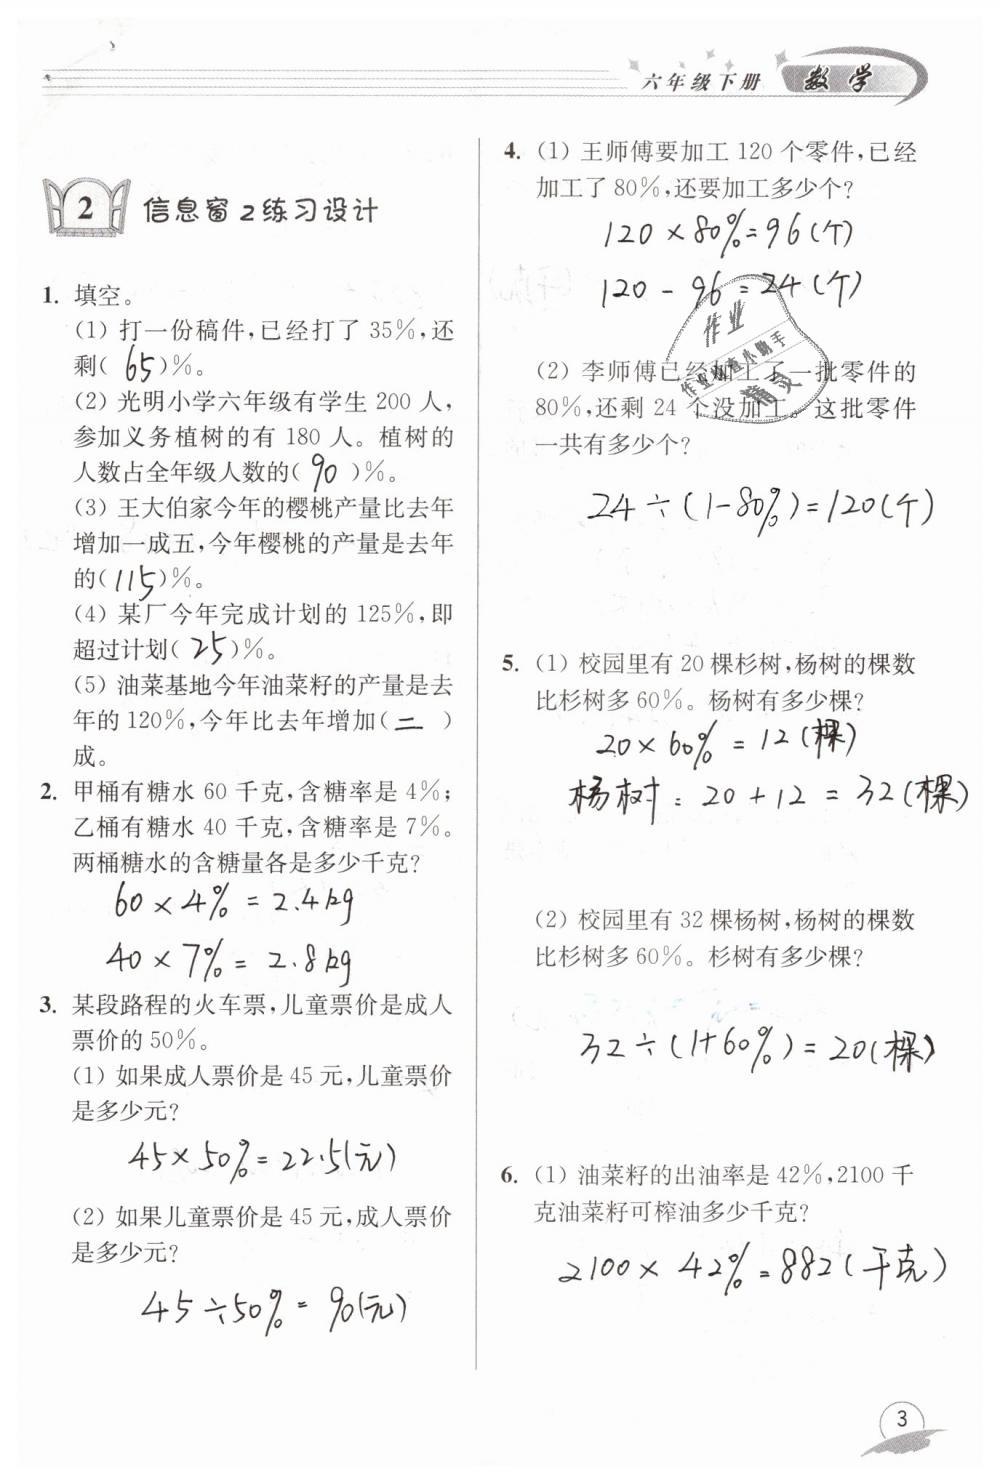 六年级下册 数学
2 信息窗2练习设计
1. 填空。
(1) 打一份稿件,已经打了35%,还
剩( 65 )%。
(2) 光明小学六年级有学生200人,
参加义务植树的有180人。植树的
人数占全年级人数的( 90 )%。
(3) 王大伯家今年的樱桃产量比去年
增加一成五,今年樱桃的产量是去年
的( 115 )%。
(4) 某厂今年完成计划的125%,即
超过计划( 25 )%。
(5) 油菜基地今年油菜籽的产量是去
年的120%,今年比去年增加( 二 )
成。
2. 甲桶有糖水60千克,含糖率是4%;
乙桶有糖水40千克,含糖率是7%。
两桶糖水的含糖量各是多少千克?
60×4%=2.4kg
40×7%=2.8kg
3. 某段路程的火车票,儿童票价是成人
票价的50%。
(1) 如果成人票价是45元,儿童票价
是多少元?
45×50%=22.5(元)
(2) 如果儿童票价是45元,成人票价
是多少元?
45÷50%=90(元)
4. (1) 王师傅要加工120个零件,已经
加工了80%,还要加工多少个?
120×80%=96(个)
120-96=24(个)
作业
作业检查小助手
精灵
(2) 李师傅已经加工了一批零件的
80%,还剩24个没加工。这批零件
一共有多少个?
24÷(1-80%)=120(个)
5. (1) 校园里有20棵杉树,杨树的棵数
比杉树多60%。杨树有多少棵?
20×60%=12(棵)
杨树:20+12=32(棵)
(2) 校园里有32棵杨树,杨树的棵数
比杉树多60%。杉树有多少棵?
32÷(1+60%)=20(棵)
6. (1) 油菜籽的出油率是42%,2100千
克油菜籽可榨油多少千克?
2100×42%=882(千克)
3